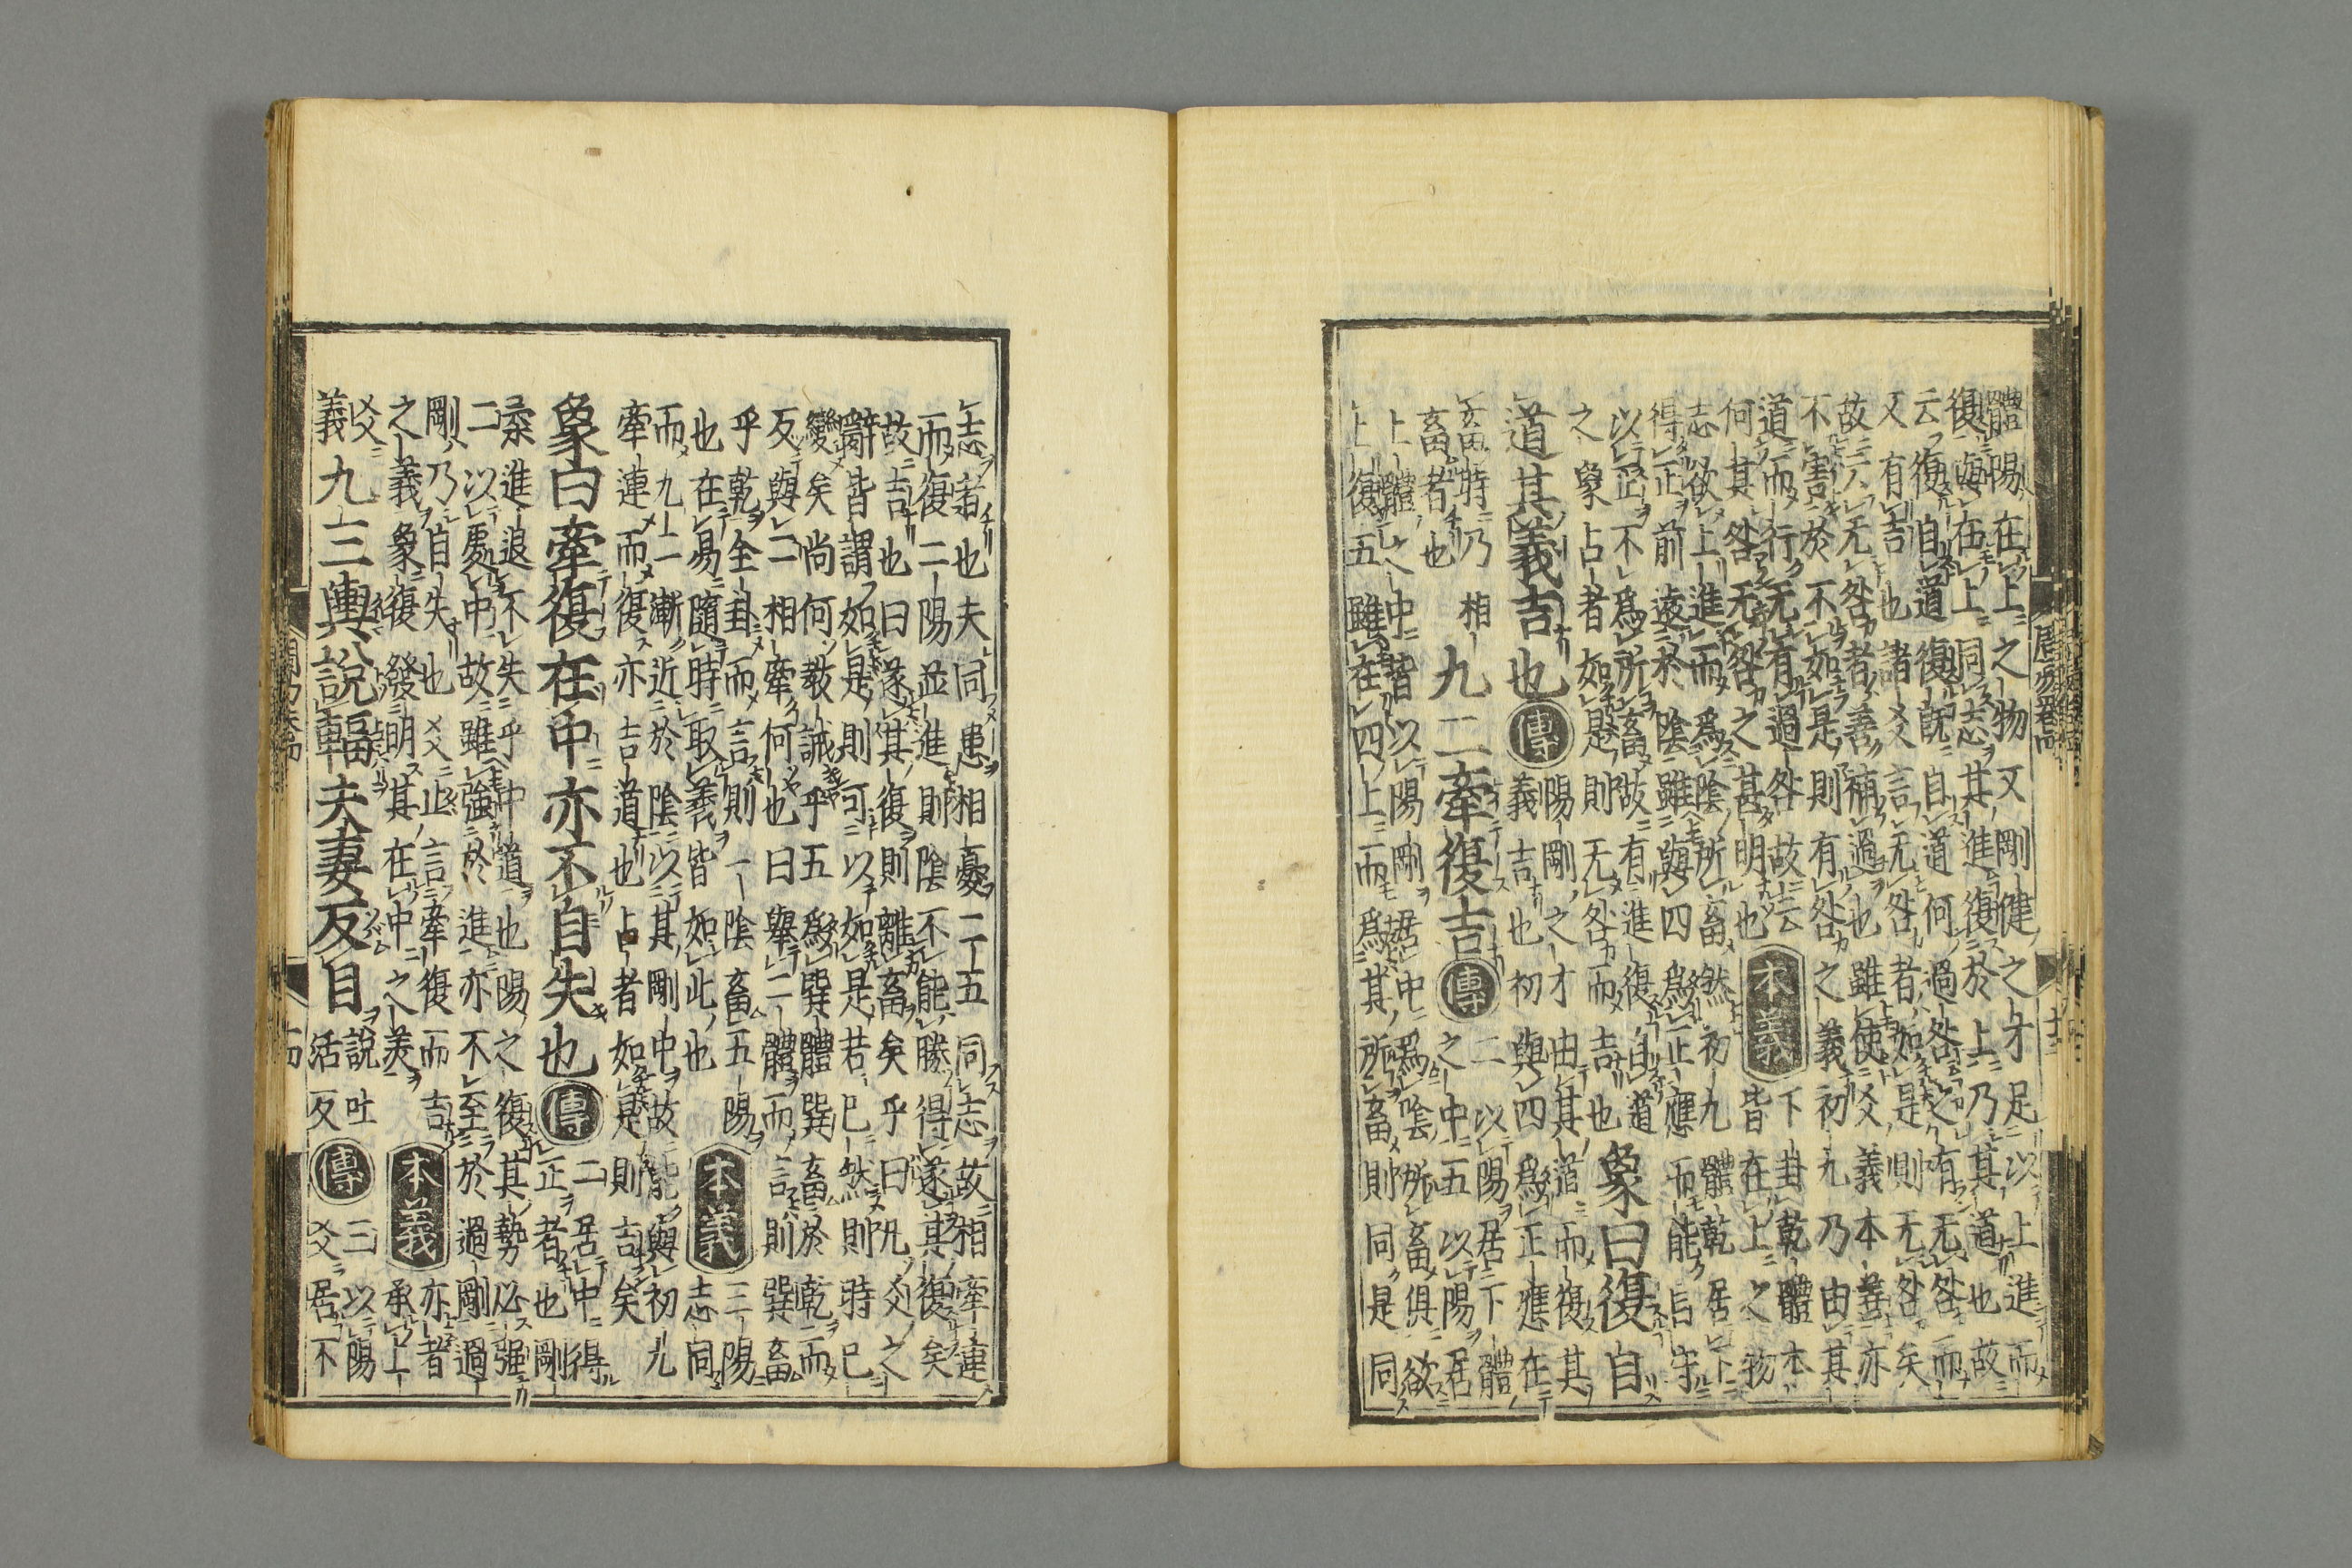 體陽在上之物又剛健之才足以上進而
復與在上同志其進復於上乃其道也故
云復自道復既自道何過咎之有无咎而
又有吉也諸爻言无咎者如是則无咎矣
故云无咎者善補過也雖使爻義本善亦
不害於不如是則有咎之義初九乃由其
道而行无有過咎故云
何其咎无咎之甚明也
本義
下卦乾體本
皆在上之物
志欲上進而爲陰所畜然初九體乾居下
得正前遠於陰雖與四爲正應而能自守
以正不爲所畜故有進復自道
之象占者如是則无咎而吉也
象曰復自
道其義吉也
傳
陽剛之才由其道而復其
義吉也初與四爲正應在
畜時乃相
畜者也
九二牽復吉
傳
二以陽居下體
之中五以陽居
上體之中皆以陽剛居中爲陰所畜俱欲
上復五雖在四上而爲其所畜則同是同
志者也夫同患相憂二五同志故相牽連
而復二陽並進則陰不能勝得遂其復矣
故吉也曰遂其復則離畜矣乎曰凡爻之
辭皆謂如是則可以如是若已然則時已
變矣尚何教誡乎五爲巽體巽畜於乾而
反與二相牽何也曰舉二體而言則巽畜
乎乾全卦而言則一陰畜五陽
也在易隨時取義皆如此也
本義
三陽
志同
而九二漸近於陰以其剛中故能與初九
牽連而復亦吉道也占者如是則吉矣
象曰牽復在中亦不自失也
傳
二居中得
正者也剛
柔進退不失乎中道也陽之復其勢必强
二以處中故雖強於進亦不至於過剛過
剛乃自失也爻止言牽復而吉
之義象復發明其在中之美
本義
亦者
承上
爻
義
九三輿說輻夫妻反目
說吐
活反
傳
三以陽
爻居不